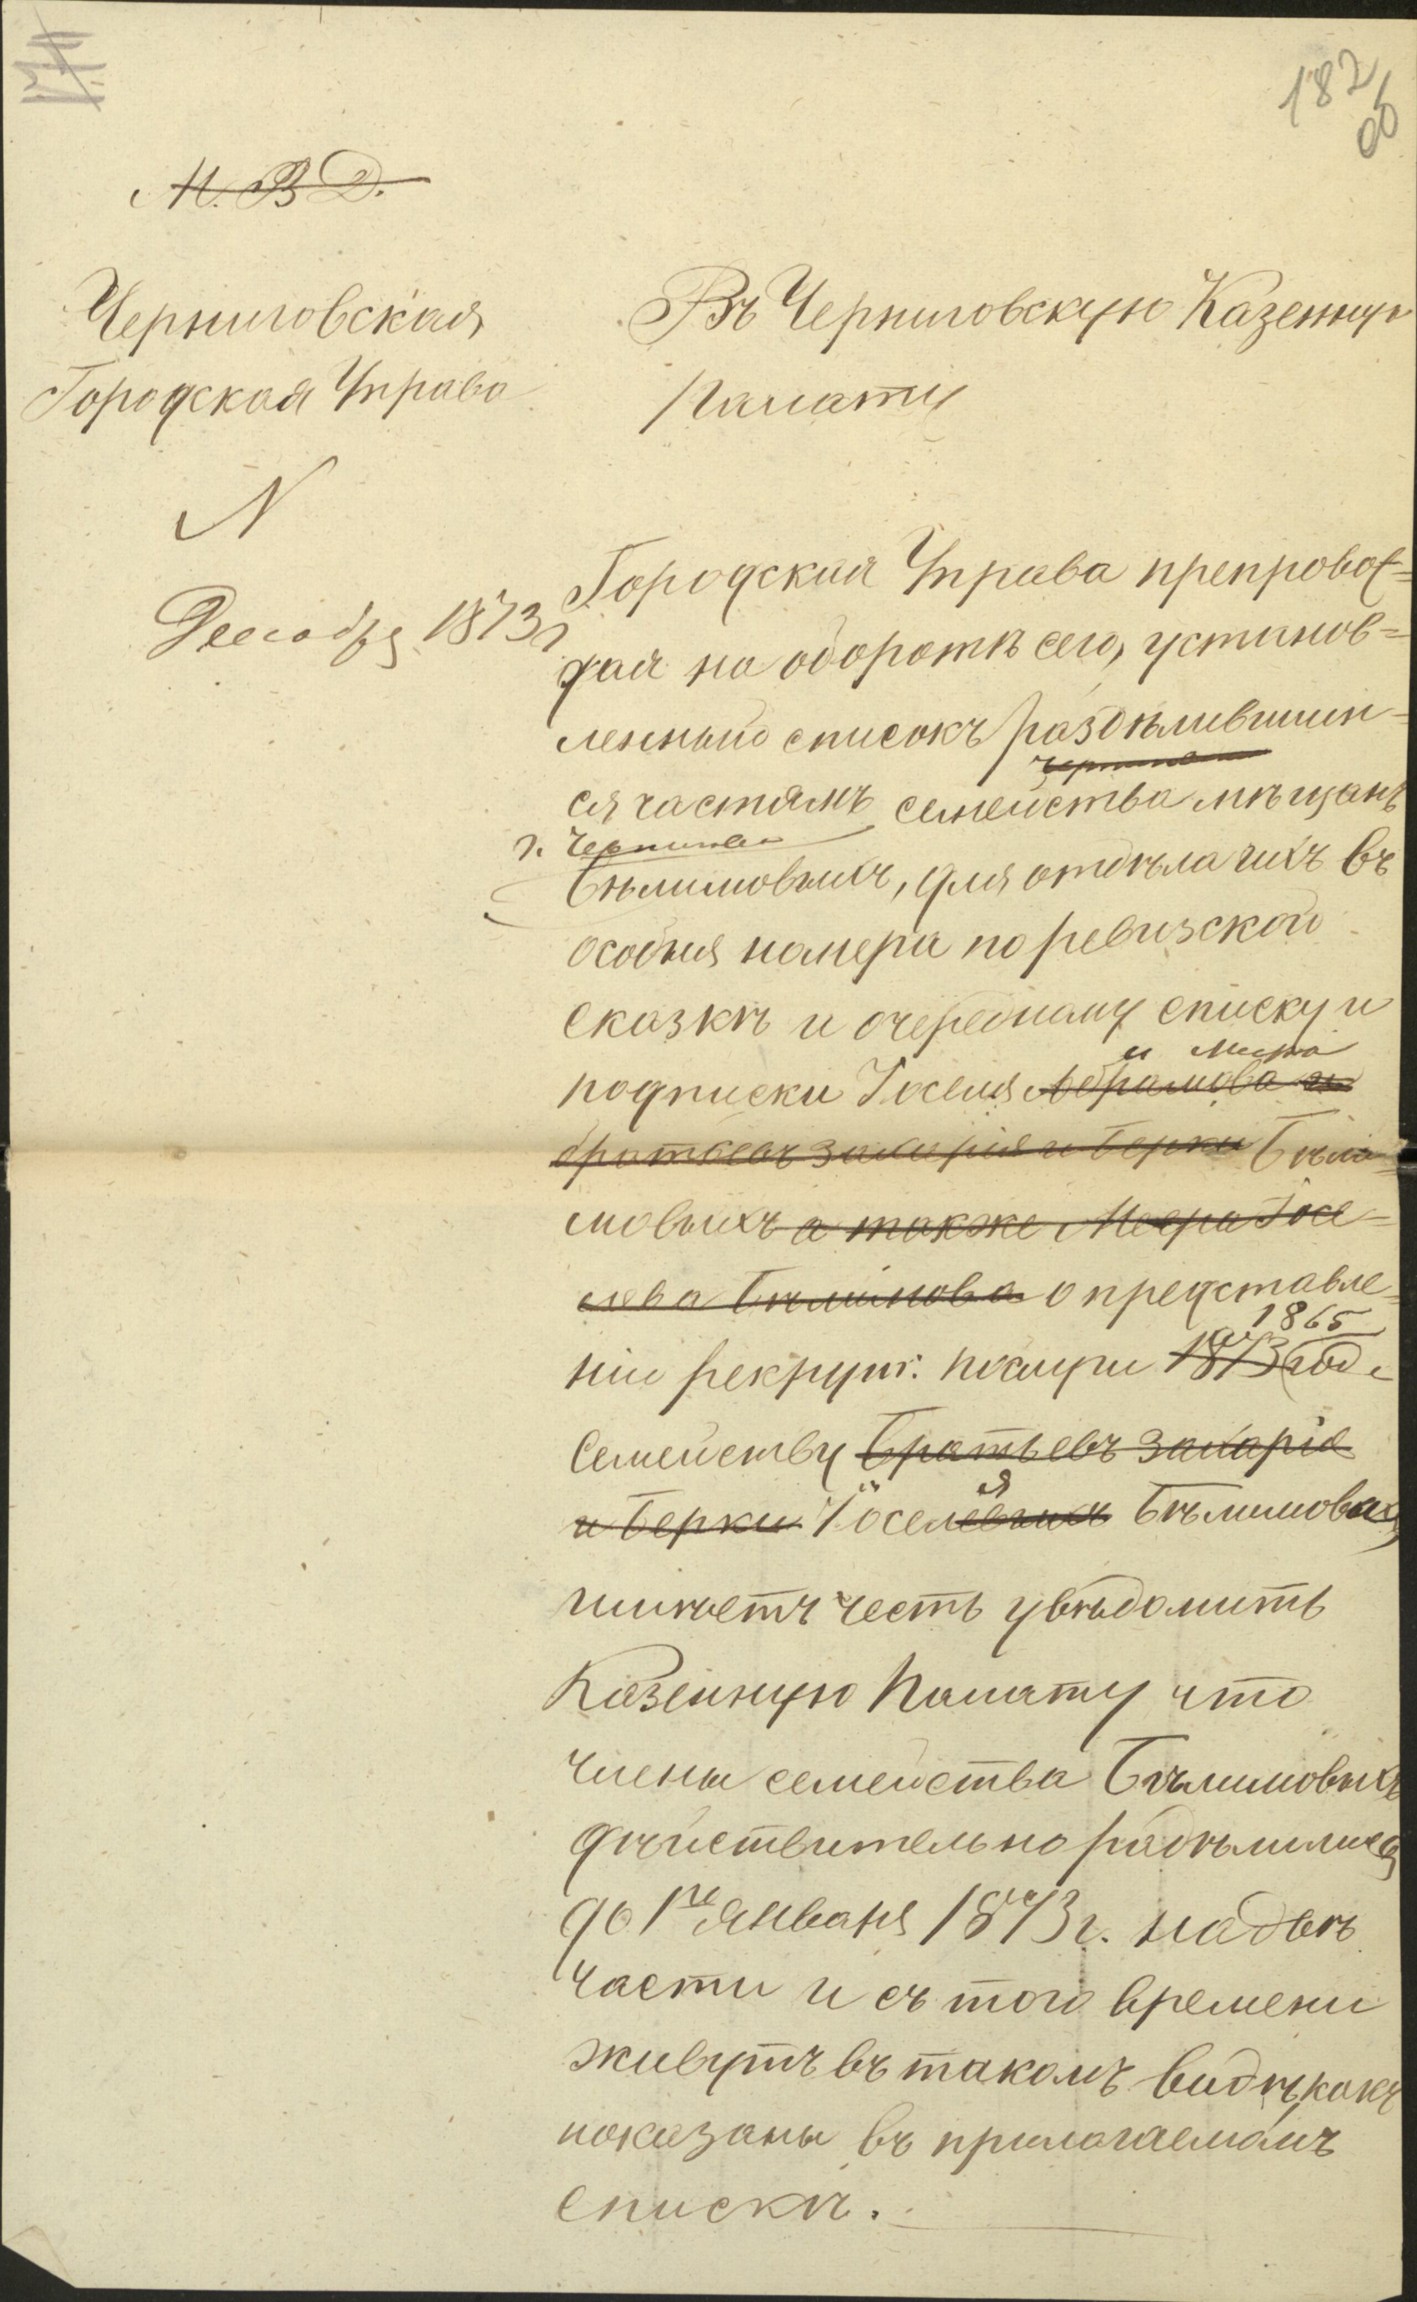 182
об
М. В Д.
Черниговская
Городская Управа
N
Декабря 1873 г
Въ Черниговскую Казенную
Палату
Городская Управа препровож=
дая на оборотѣ сего, установ=
ленный списокъ раздѣлившим=
ся частямъ семейства мѣщанъ
г. Чернигова
Бѣлиловыхъ, для отдѣла ихъ въ
особыя номера по ревизской
сказкѣ и очередному списку и
подписки Іоселя Абрамова и
братьевъ Захарія и Берки Бѣли=
ловыхъ а также Меера Іосе=
лева Бѣлилова о представле=
1865
ніи рекрут. 1873 год
Семейству Братьевъ Захарія
и Берки Іоселевыхъ Бѣлиловыхъ
имѣетъ честь увѣдомить
Казенную Палату что
члены семейства Бѣлиловыхъ
дѣйствительно раздѣлились
до 1го Января 1873 г. на двѣ
части и съ того времени
живутъ въ такомъ видѣ, какъ
показаны въ прилагаемомъ
спискѣ.